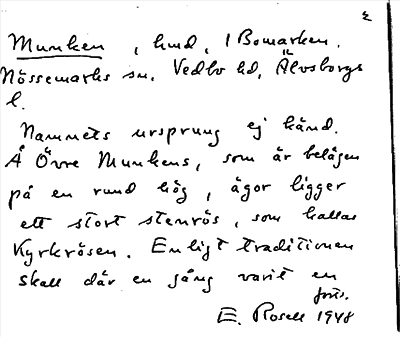 Munken, hmd, i Bomarken.
Nössemarks sn. Vedbo hd, Älvsborgs
l.
Namnets ursprung ej känd.
Å Övre Munkens, som är belägen
på en rund hög, ägor ligger
ett stort stenrös, som kallas
Kyrkrösen. Enligt traditionen
skall där en gång varit en
E. Rosell 1948